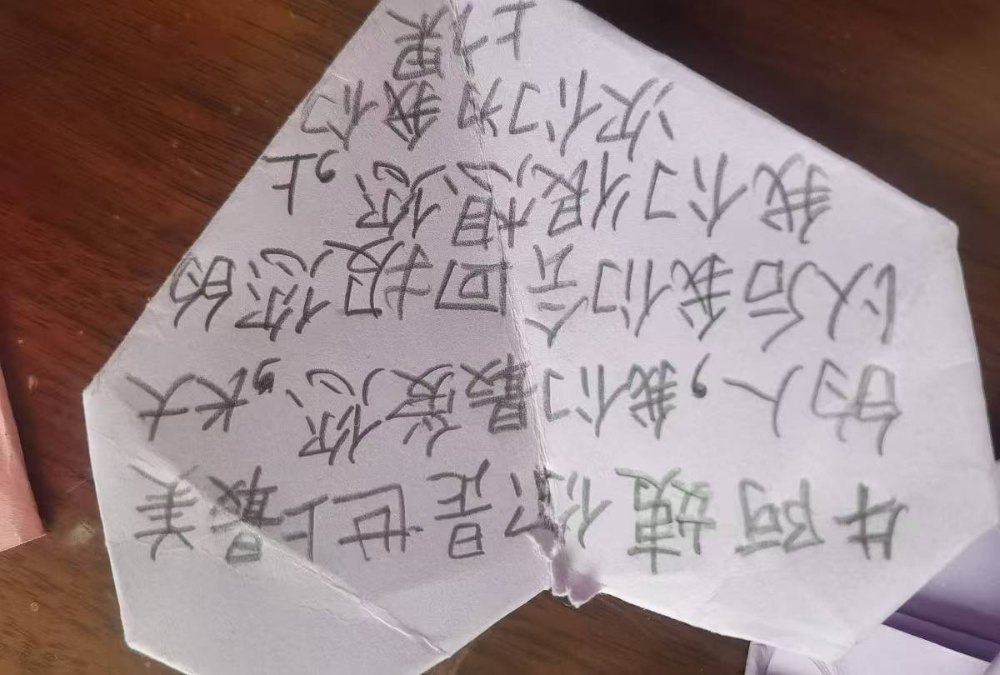 牛阿姨你是世上最美
的人,我们最爱您,长大
以后我们会回报您的
我们很想您,上
次们为我们
上课